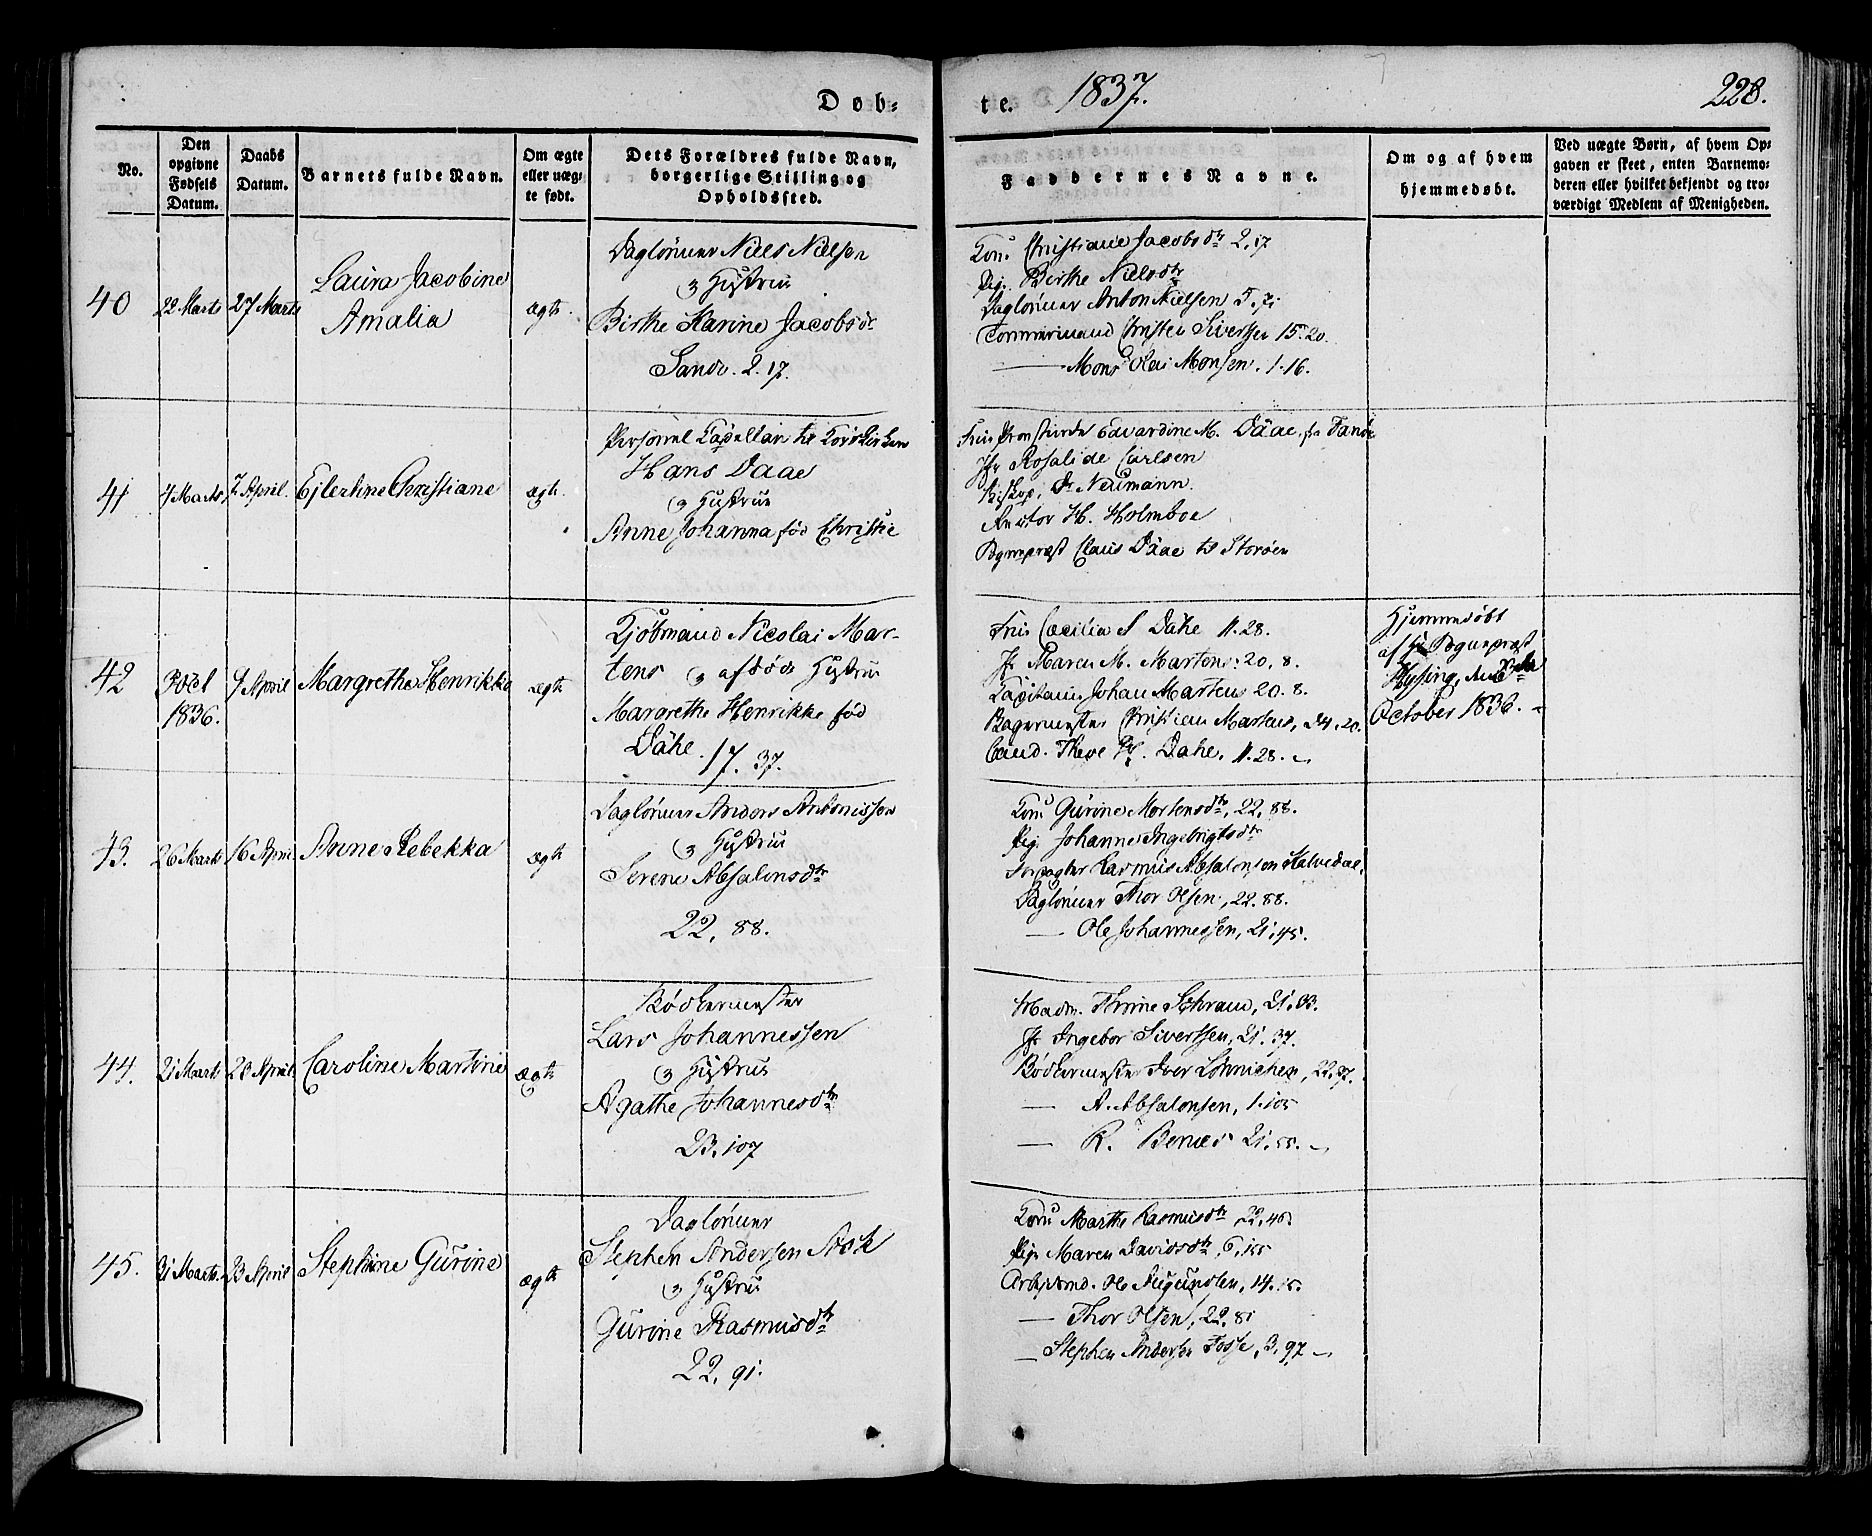 Døb=
te. 1837. 228.
No.
Den opgivne Fødsels Datum.
Daabs Datum.
Barnets fulde Navn.
Om ægte eller uæg= te født.
Dets Forældres fulde Navn, borgerlige Stilling og Opholdssted.
Faddernes Navne.
Om og af hvem hjemmedøbt.
Ved uægte Børn, af hvem Op= gaven er skeet, enten Barnemo= deren eller hvilket bekjendt og tro= værdigt Medlem af Menigheden.
40 22 Marts 27 Marts
Laura Jacobine
Amalia
ægte
Daglønner Niels Nielsen
og Hustrue
Birthe Karine Jacobsdr
Sandv. 2. 17.
Konu Christiane Jacobsdtr 2, 17
Pige Birthe Nielsdtr
Dagløner Anton Nielsen
Tømmermand Christen Sivertsen 15. 20.
— Mons Olai Monsen. 1. 16.
41 4 Marts 7 April.
Ejlertine Christiane
ægte
Personel Capellan til Korskirken
Hans Daae
og Hustrue
Anne Johanna fød Christie
Frue Provstinde Edvardine M. Daae, fra
Jfr Rosalide Carlsen
Biskop, Dr Neumann.
H. Holmboe
Sognepræst Claus Daae til Storøen
42
October 1836.
9 April
Margrethe Henrikke
ægte
Kjøbmand Nicolai Mar-
tens og afdøde Hustrue
Margrethe Henrikke fød
Dahe. 17. 37.
Frue Cæcilia S Dahe 11. 28.
Jfr Maren M. Martens 20, 8.
Capitain Johan Martens 20. 8.
Bagermester Christian Martens, 24. 20.
Cand. Theol Dahe, 11. 28.
Hjemmedøbt
af Sognepræst
Hysing,
October 1836.
43. 26 Marts 16 April
Anne Rebekka
ægte
Dagløner Anders Antonissen
og Hustrue
Serene Absalonsdtr
22, 88.
Konu Gurine Mortensdtr, 22, 88.
Pige Johanne Ingebrigtsdtr
Rasmus Absalonsen
Dagløner Thor Olsen, 22. 88.
— Ole Johannessen, 21, 45.
44. 21 Marts 23 April
Caroline Martine
ægte
Bødkermester
Lars Johannessen
og Hustrue
Agathe Johannesdtr
23. 107
Madm. Thrine Schram, 21. 33.
Jfr Ingebor Sivertsen, 21. 37.
Bødkermester Iver
— A. Absalonsen, 1. 105
— R. 21, 55.
45. 31 Marts. 23 April
Stephine Gurine
ægte
Dagløner
Stephen Andersen
og Hustrue
Gurine Rasmusdtr
22, 91.
Konu Marthe Rasmusdtr
Pige Maren Davidsdtr, 6, 155
Arbeidsmd. Ole
— Thor Olsen, 22, 81
— Stephen Andersen Fosse, 3, 97